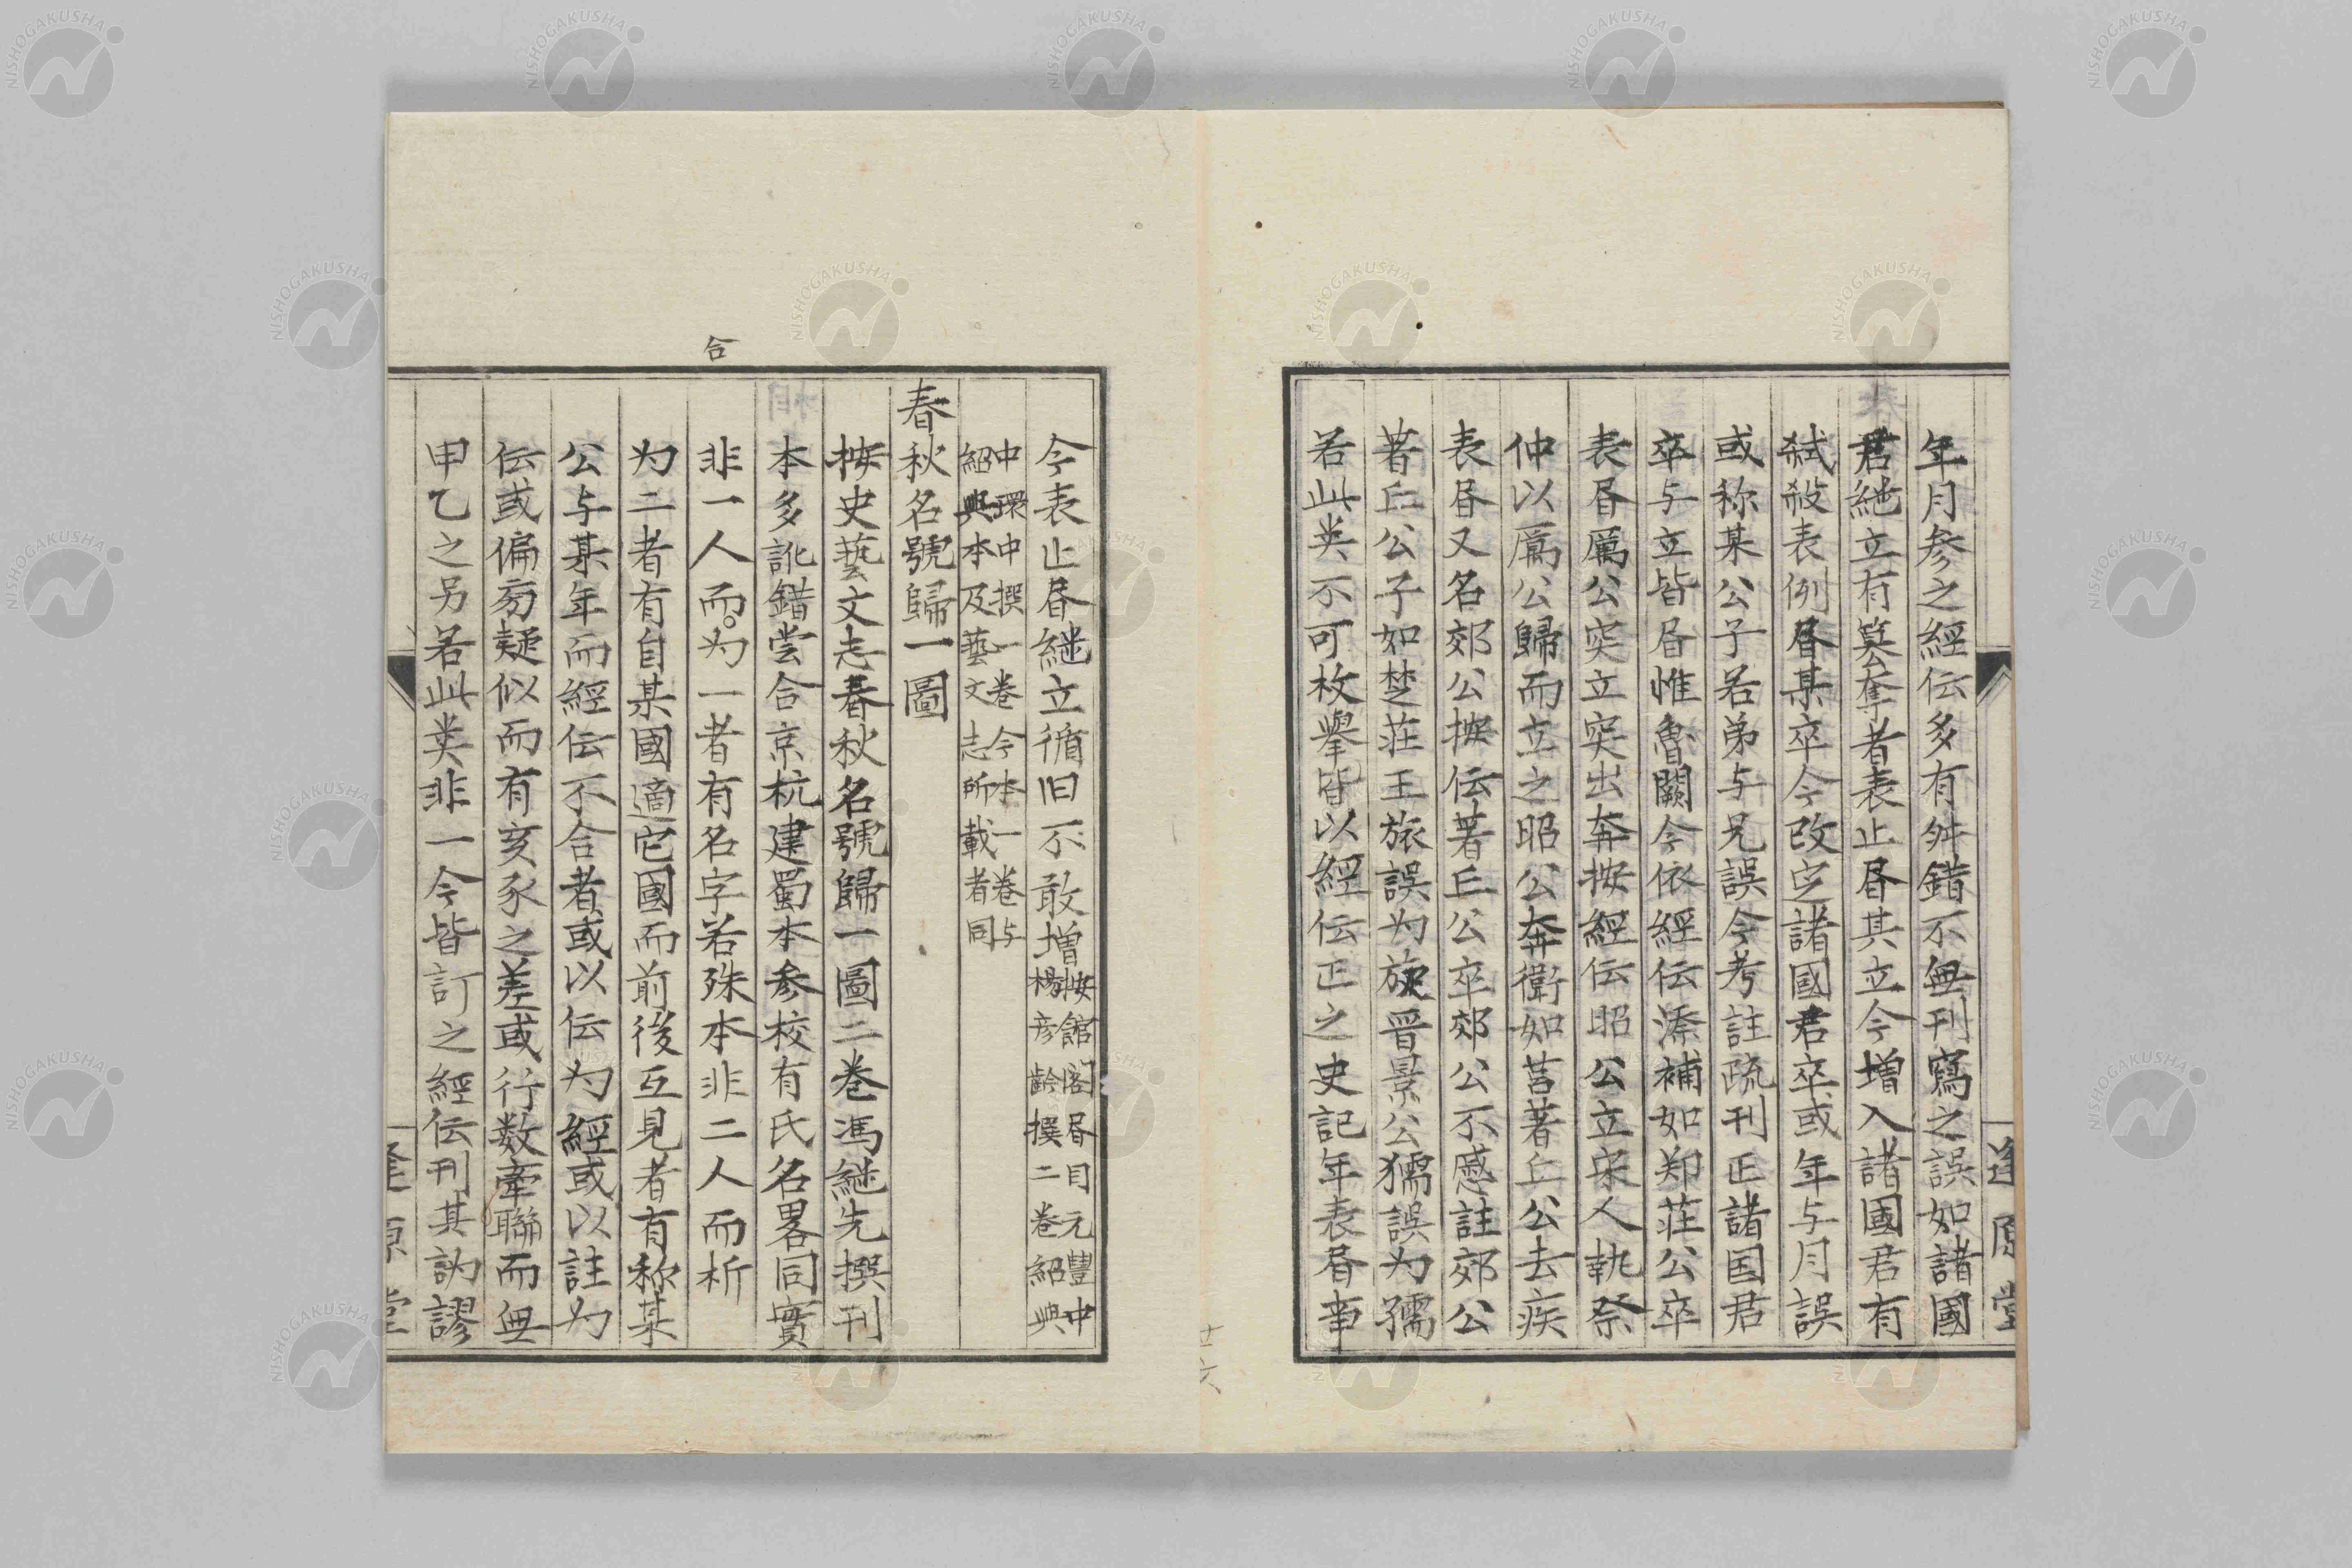 年月参之經伝多有舛錯不無刊寫之誤如諸國
君繼立有簒奪者表止昏其立今増入諸國君有
弑殺表例昏某卒今改定諸國君卒或年与月誤
或称某公子若弟与兄誤今考註疏刊正諸国君
卒与立皆昏惟魯闕今依經伝添補如郑莊公卒
表昏厲公突立突出奔按經伝昭公立宋人執祭
仲以厲公歸而立之昭公奔衛如莒著丘公去疾
表昏又名郊公按伝著丘公卒郊公不慼註郊公
著丘公子如楚莊王旅誤为旋晋景公獳誤为孺
若此类不可枚擧皆以經伝正之史記年表昏事
逢原堂
今表止昏繼立循旧不敢增按館閣昏目元豐中
楊彦齡撰二卷紹興
中環中撰一卷今本一卷与
紹興本及藝文志所載者同
春秋名號歸一圖
按史藝文志春秋名號歸一圖二卷馮繼先撰刊
本多訛錯尝合京杭建蜀本参校有氏名畧同實
合
非一人而为一者有名字若殊本非二人而析
为二者有自某國適它國而前後互見者有称某
公与某年而經伝不合者或以伝为經或以註为
伝或偏旁疑似而有亥豕之差或行数牽聯而無
甲乙之另若此类非一今皆訂之經伝刊其訛謬
逢原堂
廿六
NISHOGAKUSHA